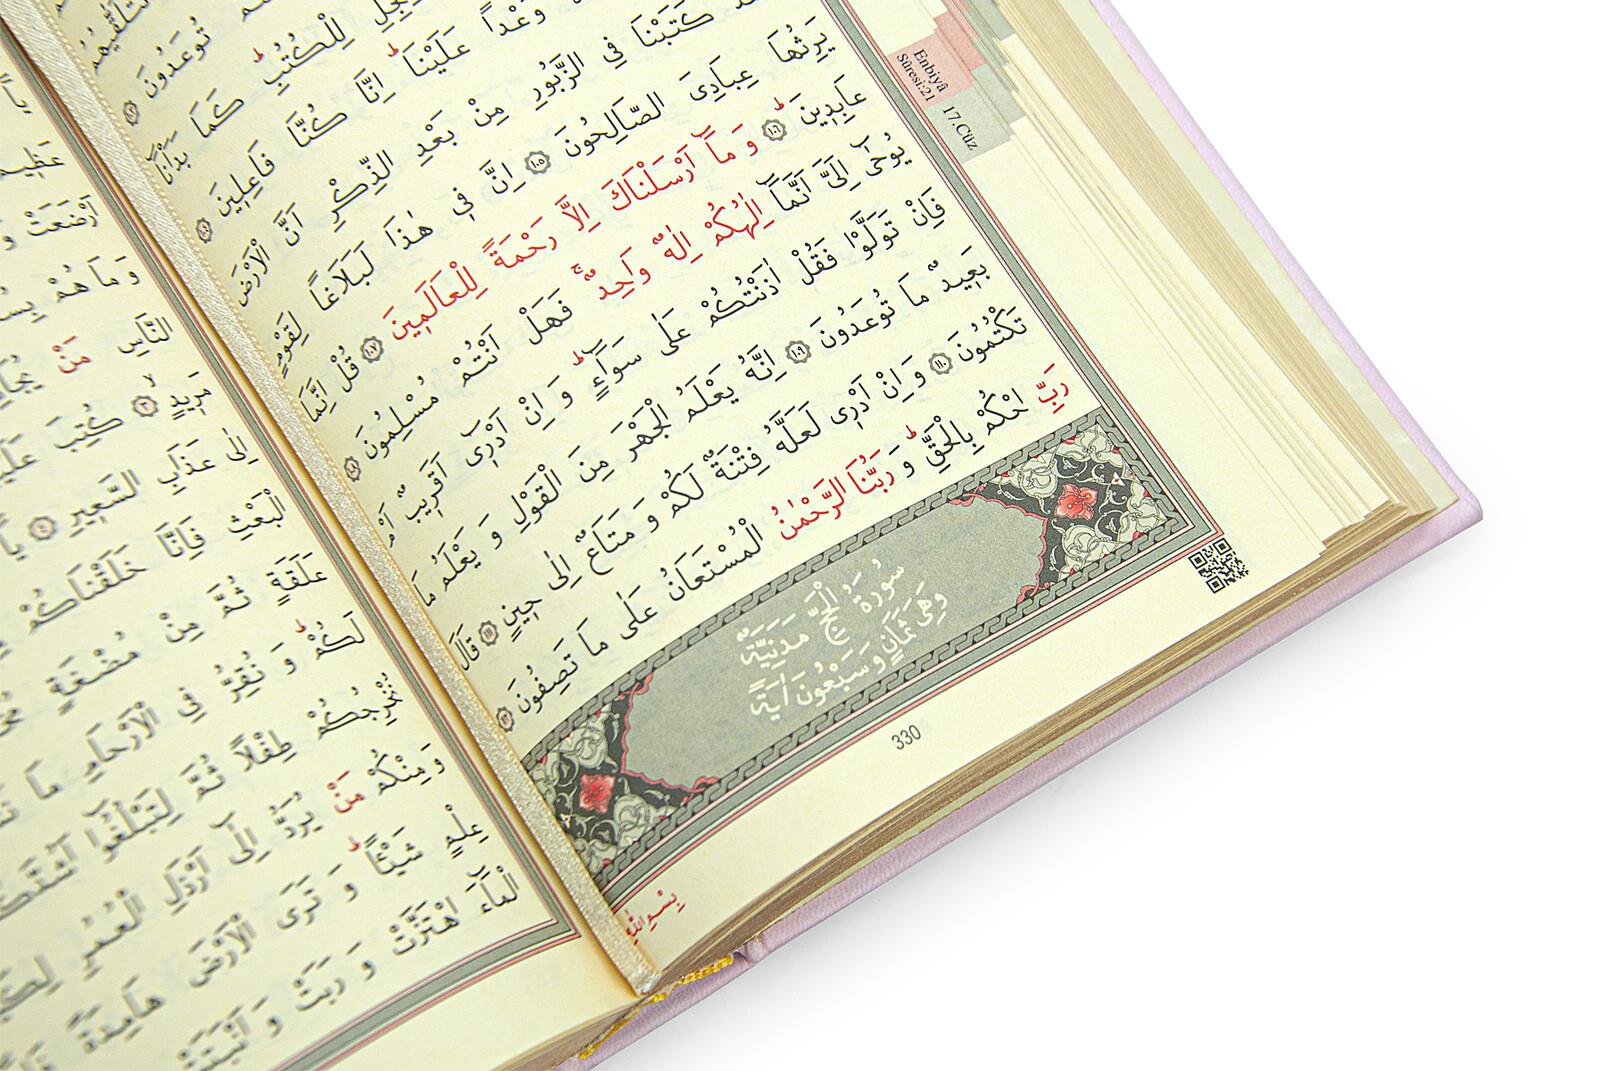 تُوعَدُونَ ١٠٣
لِلْكُتُبِ كَمَا بَدَأْنَٓا
وَعْداً عَلَيْنَاۜ اِنَّا كُنَّا فَاعِلِينَ ١٠٤
كَتَبْنَا فِي الزَّبُورِ مِنْ بَعْدِ الذِّكْرِ اَنَّ الْاَرْضَ
يَرِثُهَا عِبَادِيَ الصَّالِحُونَ ١٠٥ اِنَّ فِي هٰذَا لَبَلَاغاً لِقَوْمٍ
عَابِدِينَۜ ١٠٦ وَمَٓا اَرْسَلْنَاكَ اِلَّا رَحْمَةً لِلْعَالَمِينَ ١٠٧ قُلْ اِنَّمَا
يُوحٰٓى اِلَيَّ اَنَّمَٓا اِلٰهُكُمْ اِلٰهٌ وَاحِدٌۚ فَهَلْ اَنْتُمْ مُسْلِمُونَ ١٠٨
فَاِنْ تَوَلَّوْا فَقُلْ اٰذَنْتُكُمْ عَلٰى سَوَٓاءٍۜ وَاِنْ اَدْرِٓي اَقَرِيبٌ اَمْ
بَعِيدٌ مَا تُوعَدُونَ ١٠٩ اِنَّهُ يَعْلَمُ الْجَهْرَ مِنَ الْقَوْلِ وَيَعْلَمُ مَا
تَكْتُمُونَ ١١٠ وَاِنْ اَدْرِي لَعَلَّهُ فِتْنَةٌ لَكُمْ وَمَتَاعٌ اِلٰى حِينٍ ١١١ قَالَ
رَبِّ احْكُمْ بِالْحَقِّۜ وَرَبُّنَا الرَّحْمٰنُ الْمُسْتَعَانُ عَلٰى مَا تَصِفُونَ ١١٢
سُورَةُ الْحَجِّ مَدَنِيَّةٌ
وَهِيَ ثَمَانٍ وَسَبْعُونَ اٰيَةً
330
بِسْمِ اللّٰهِ
Enbiyâ
Sûresi:21
17.Cüz
عَظِيمٌ
اَرْضَعَتْ
وَمَا هُمْ
النَّاسِ مَنْ
مَرِيدٍۙ ٣ كُتِبَ
اِلٰى عَذَابِ السَّعِيرِ ٤
الْبَعْثِ فَاِنَّا خَلَقْنَاكُمْ
عَلَقَةٍ ثُمَّ مِنْ مُضْغَةٍ
لَكُمْۜ وَنُقِرُّ فِي الْاَرْحَامِ مَا
نُخْرِجُكُمْ طِفْلاً ثُمَّ لِتَبْلُغُٓوا
وَمِنْكُمْ مَنْ يُرَدُّ اِلٰٓى اَرْذَلِ الْعُمُرِ
عِلْمٍ شَيْـٔاًۜ وَتَرَى الْاَرْضَ هَامِدَةً
الْمَٓاءَ اهْتَزَّتْ وَرَبَتْ وَاَنْبَتَتْ